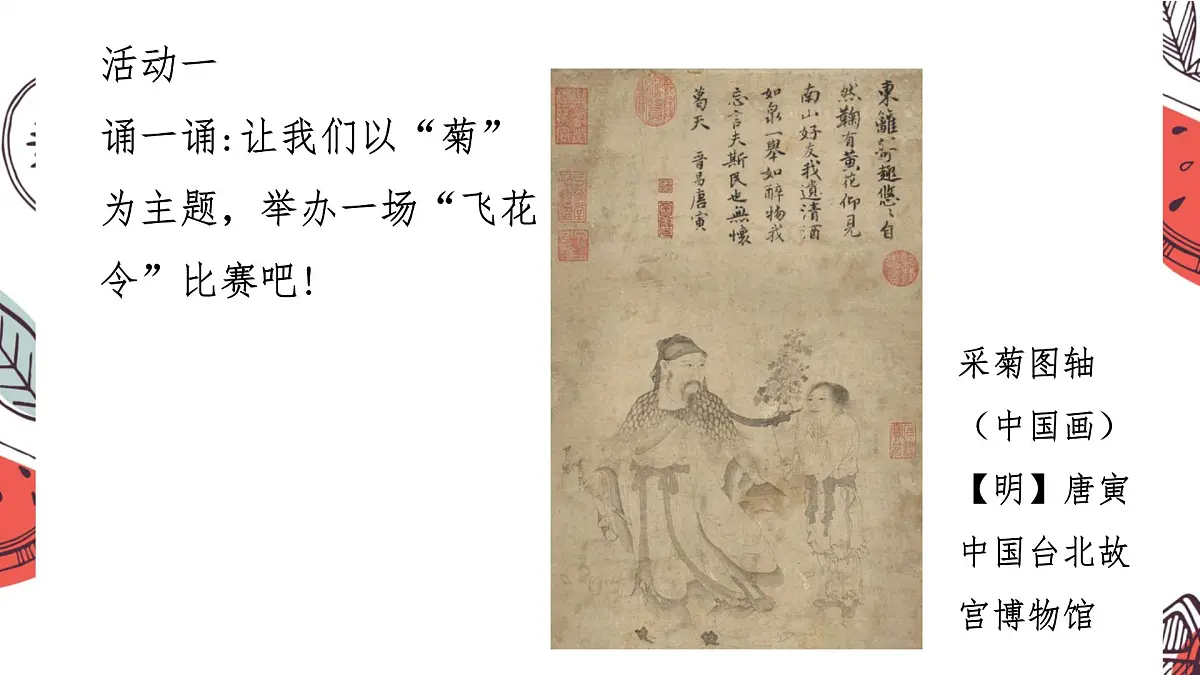 活动一
诵一诵:让我们以“菊”
为主题，举办一场“飞花
令”比赛吧!
東籬寄趣悠〻自
然鞠有黄花仰見
南山好友我遺清酒
如泉一舉如醉物我
忘言夫斯民也無懷
葛天 晋昌唐寅
采菊图轴
（中国画）
【明】唐寅
中国台北故
宫博物馆